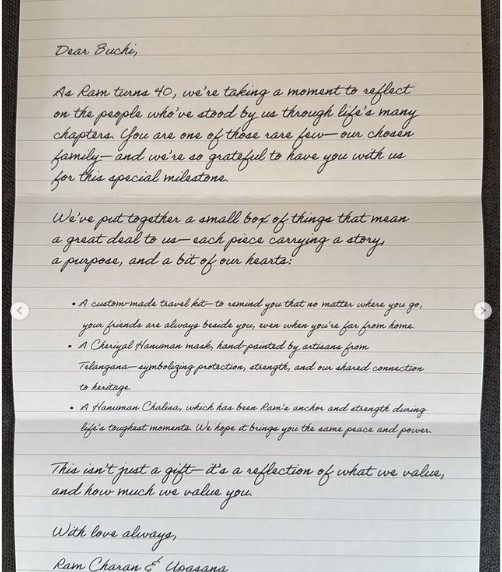 Dear Buchi,
As Ram turns 40, we're taking a moment to reflect
on the people who've stood by us through life's many
chapters. You are one of those rare few—our chosen
family—and we're so grateful to have you with us
for this special milestone.
We've put together a small box of things that mean
a great deal to us—each piece carrying a story,
a purpose, and a bit of our hearts:
• A custom-made travel kit—to remind you that no matter where you go,
your friends are always beside you, even when you're far from home.
• A Cheriyal Hanuman mask, hand-painted by artisans from
Telangana—symbolizing protection, strength, and our shared connection
to heritage
• A Hanuman Chalisa, which has been Ram's anchor and strength during
life's toughest moments. We hope it brings you the same peace and power.
This isn't just a gift—it's a reflection of what we value,
and how much we value you.
With love always,
Ram Charan & Upasana